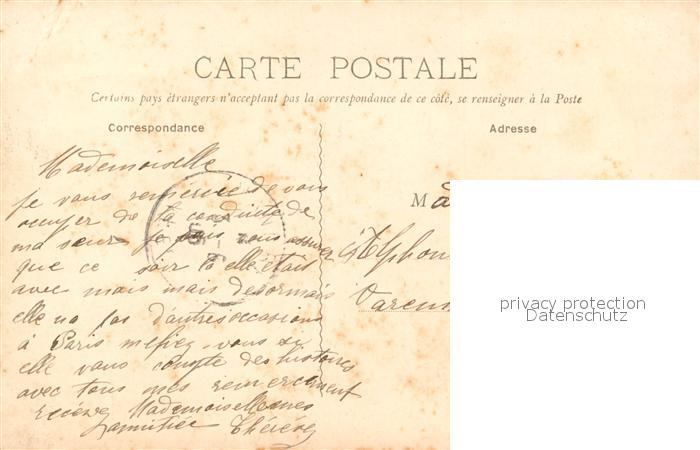 CARTE POSTALE
Certains pays étrangers n'acceptant pas la correspondance de ce côté, se renseigner à la Poste
Correspondance
Adresse
Mademoiselle
je vous remercie de vous
occuper de la conduite de
ma seur je puis vous assurer
que ce soir là elle était
avec mais mais desormais
elle na pas d'autres occasions
à Paris mefiez-vous si
elle vous compte des histoires
avec tous mes remerciement
recevez Mademoiselle mes
lamitiée Thérèse
Ma
Alphon
Varenn
privacy protection
Datenschutz